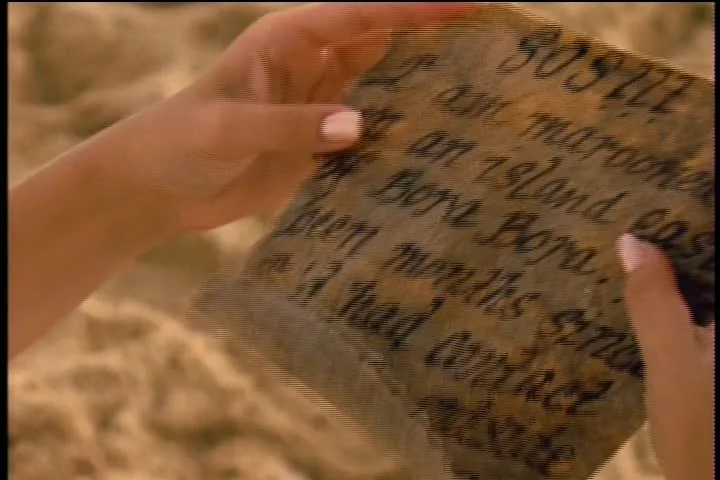 SOS!!!
I am marooned
on an island east
of Bora Bora.
been months since
had contact